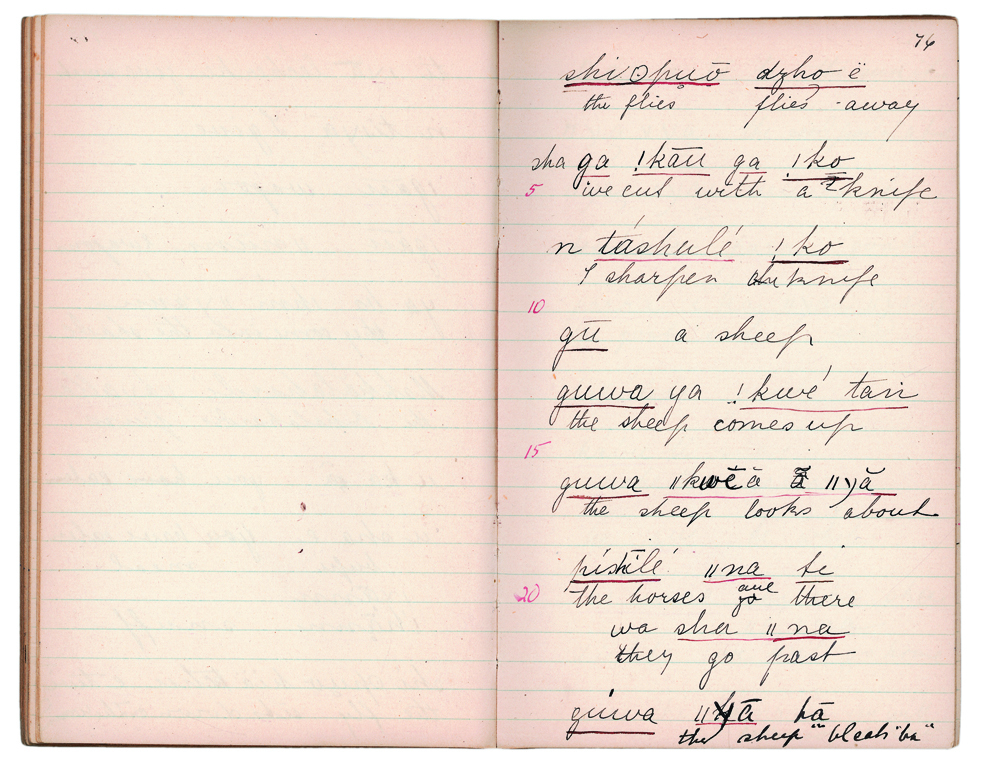 76
shi opuō dzho ë
the flies flies away
sha ga !kāu ga !ko
5 we cut with a knife
n táshulé !ko
I sharpen knife
10
gū a sheep
guwa ya !kwé tari
the sheep comes up
15
guwa ǁkwĕā ā̆ ǁyă
the sheep looks about
píshilé ǁna ti
20 the horses are there
wa sha ǁna
they go past
guwa ǁā bā
the sheep "bleats "ba"